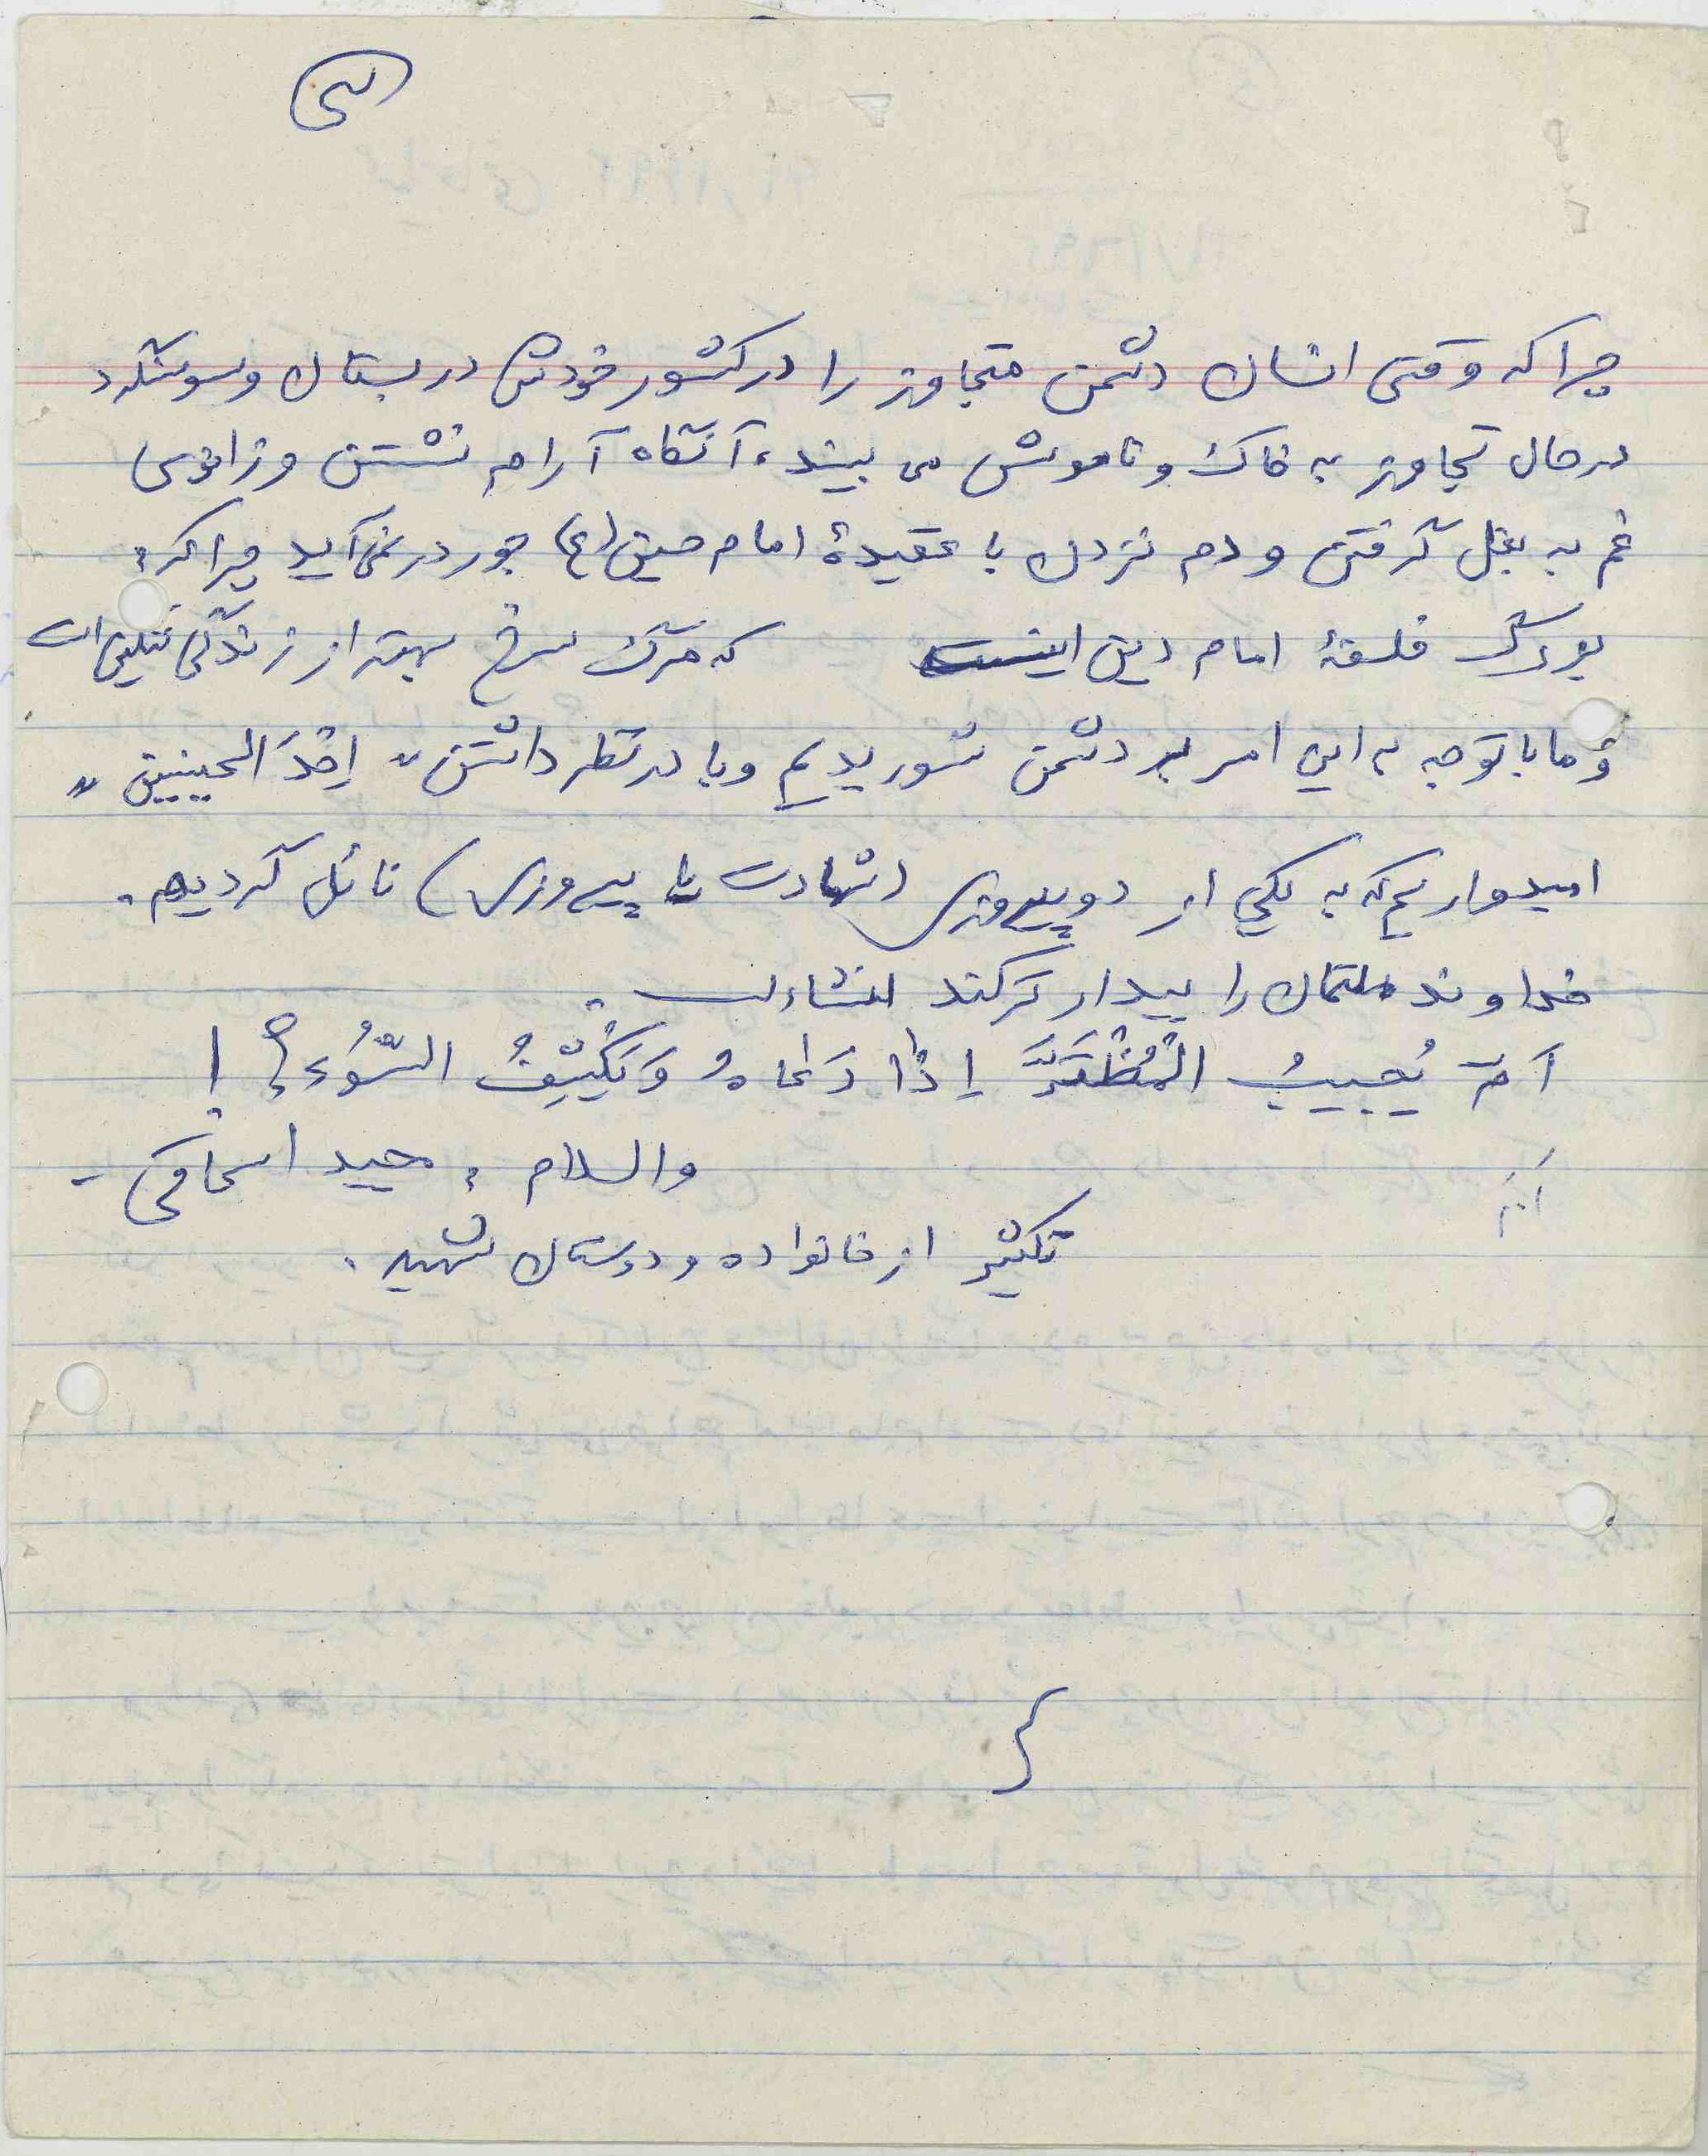 چرا که وقتی انسان دشمن متجاوز را در کشور خودش در بستان و سوسنگرد
در حال تجاوز به خاک و ناموسش می بیند، آنگاه آرام نشستن و زانوی
غم به بغل گرفتن و دم نزدن با عقیدهٔ امام حسین (ع) جور در نمی آید چرا که:
بزرگ فلسفهٔ امام دین اینست که مرگ سرخ بهتر از زندگی ننگین است
و ما با توجه به این امر بر دشمن شوریدیم و با در نظر داشتن "اِحْدَ الحسنیین"
امیدواریم که به یکی از دو پیروزی (شهادت یا پیروزی) نائل گردیم.
خداوند ملتمان را بیدارتر کند انشاءالله.
اَمَّ یُجیبُ الْمُظْطَرَّ اِذٰا دَعٰاهُ وَ یَکْشِفُ السُّوء؟!
والسلام، حمید اسحاقی -
تکثیر از خانواده و دوستان شهید.